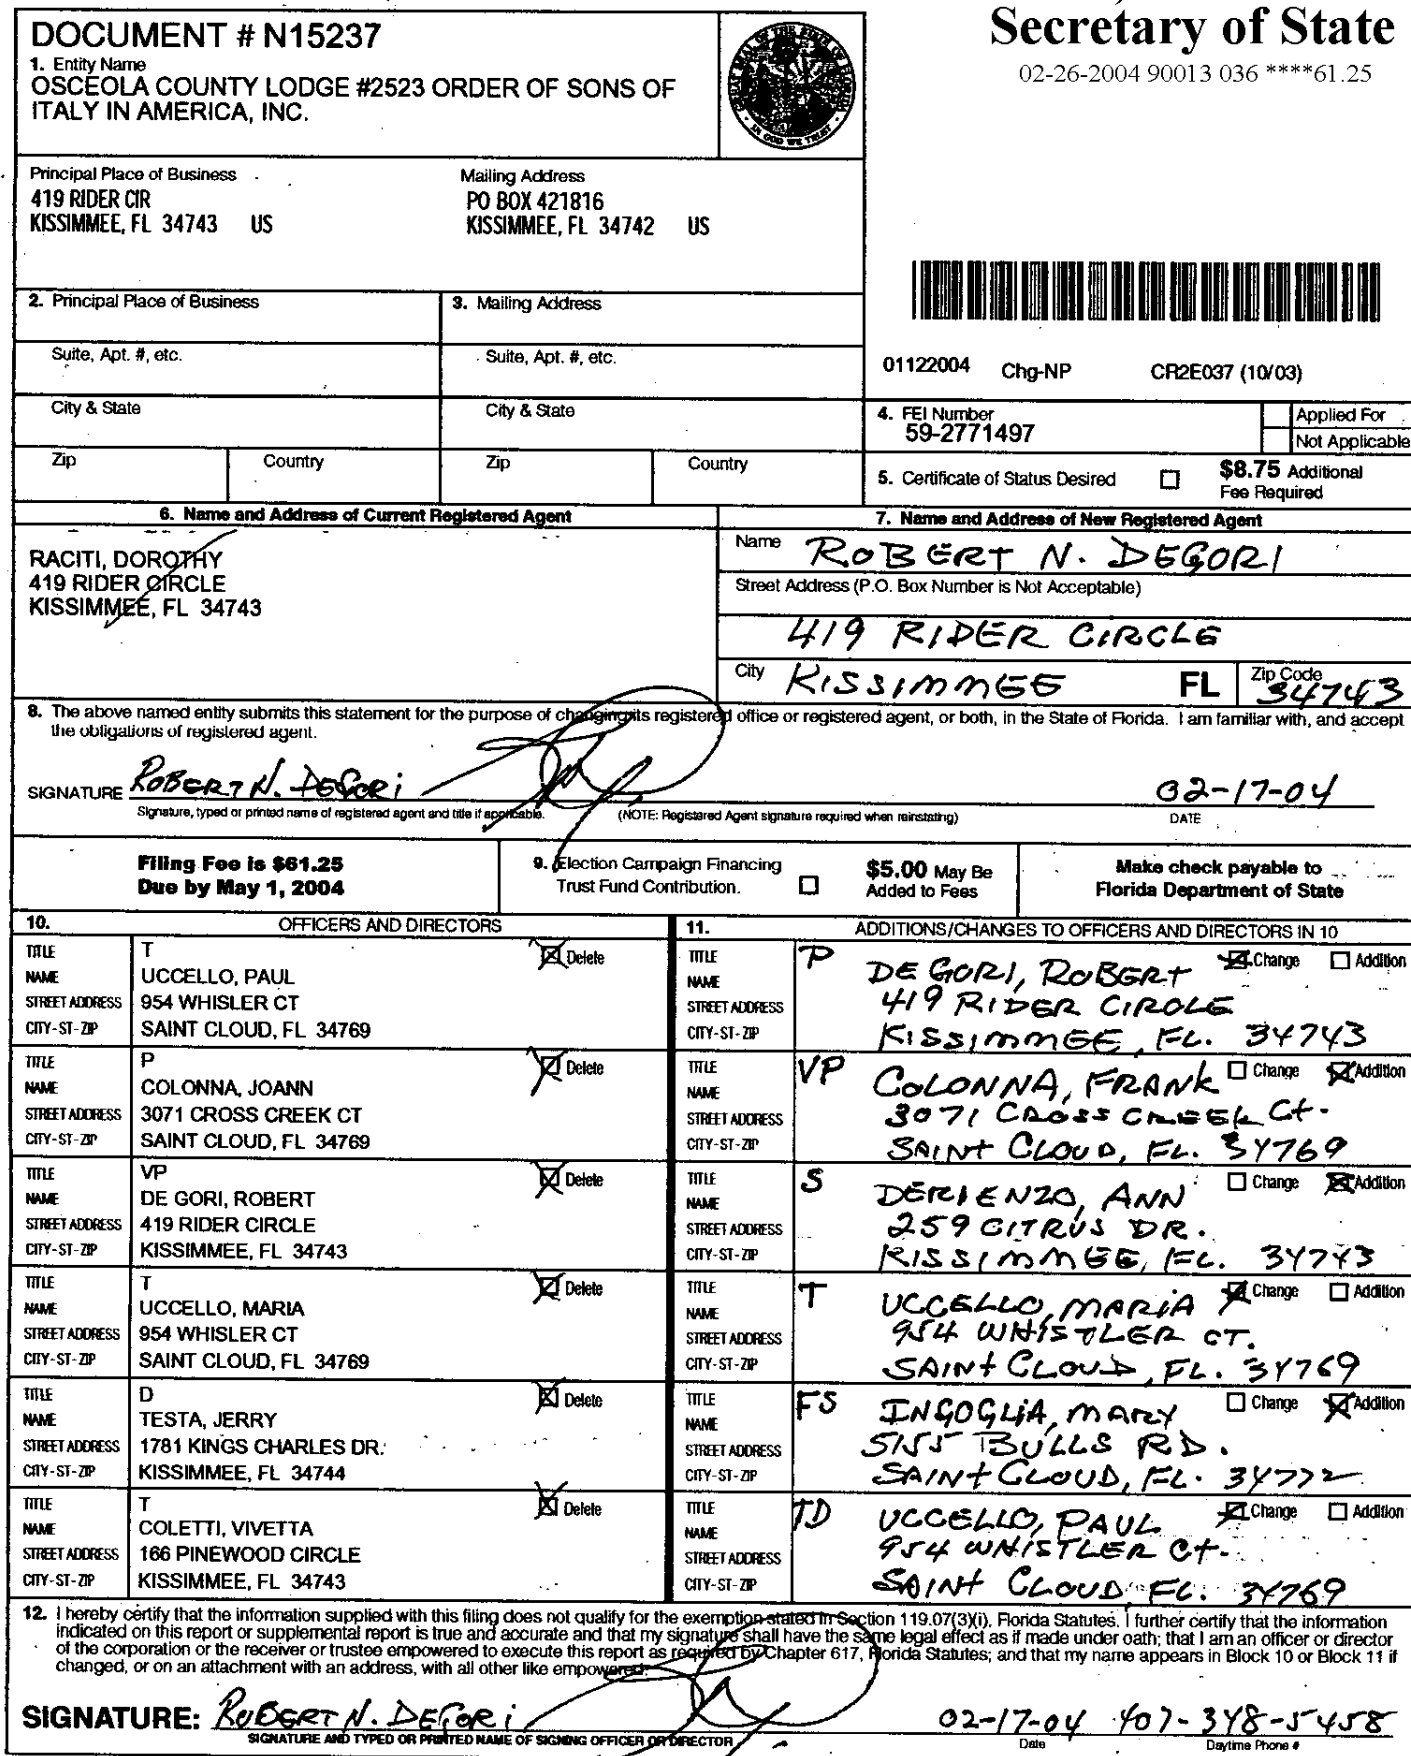 Secretary of State
02-26-2004 90013 036 ****61.25
DOCUMENT # N15237
1. Entity Name
OSCEOLA COUNTY LODGE #2523 ORDER OF SONS OF
ITALY IN AMERICA, INC.
IN GOD WE TRUST
Principal Place of Business
419 RIDER CIR
KISSIMMEE, FL 34743 US
Mailing Address
PO BOX 421816
KISSIMMEE, FL 34742 US
2. Principal Place of Business
3. Mailing Address
Suite, Apt. #, etc.
Suite, Apt. #, etc.
City & State
City & State
Zip
Country
Zip
Country
01122004 Chg-NP CR2E037 (10/03)
4. FEI Number
59-2771497
Applied For
Not Applicable
5. Certificate of Status Desired
$8.75 Additional
Fee Required
6. Name and Address of Current Registered Agent
RACITI, DOROTHY
419 RIDER CIRCLE
KISSIMMEE, FL 34743
7. Name and Address of New Registered Agent
Name ROBERT N. DEGORI
Street Address (P.O. Box Number is Not Acceptable)
419 RIDER CIRCLE
City KISSIMMEE FL Zip Code 34743
8. The above named entity submits this statement for the purpose of changing its registered office or registered agent, or both, in the State of Florida. I am familiar with, and accept
the obligations of registered agent.
SIGNATURE ROBERT N. DEGORI 02-17-04
Signature, typed or printed name of registered agent and title if applicable. (NOTE: Registered Agent signature required when reinstating) DATE
Filing Fee is $61.25
Due by May 1, 2004
9. Election Campaign Financing
Trust Fund Contribution.
$5.00 May Be
Added to Fees
Make check payable to
Florida Department of State
10. OFFICERS AND DIRECTORS
TITLE T Delete
NAME UCCELLO, PAUL
STREET ADDRESS 954 WHISLER CT
CITY-ST-ZIP SAINT CLOUD, FL 34769
TITLE P Delete
NAME COLONNA, JOANN
STREET ADDRESS 3071 CROSS CREEK CT
CITY-ST-ZIP SAINT CLOUD, FL 34769
TITLE VP Delete
NAME DE GORI, ROBERT
STREET ADDRESS 419 RIDER CIRCLE
CITY-ST-ZIP KISSIMMEE, FL 34743
TITLE T Delete
NAME UCCELLO, MARIA
STREET ADDRESS 954 WHISLER CT
CITY-ST-ZIP SAINT CLOUD, FL 34769
TITLE D Delete
NAME TESTA, JERRY
STREET ADDRESS 1781 KINGS CHARLES DR.
CITY-ST-ZIP KISSIMMEE, FL 34744
TITLE T Delete
NAME COLETTI, VIVETTA
STREET ADDRESS 166 PINEWOOD CIRCLE
CITY-ST-ZIP KISSIMMEE, FL 34743
11. ADDITIONS/CHANGES TO OFFICERS AND DIRECTORS IN 10
TITLE P Change Addition
NAME DE GORI, ROBERT
STREET ADDRESS 419 RIDER CIRCLE
CITY-ST-ZIP KISSIMMEE, FL. 34743
TITLE VP Change Addition
NAME COLONNA, FRANK
STREET ADDRESS 3071 CROSS CREEK Ct.
CITY-ST-ZIP SAINT CLOUD, FL. 34769
TITLE S Change Addition
NAME DERIENZO, ANN
STREET ADDRESS 259 CITRUS DR.
CITY-ST-ZIP KISSIMMEE, FL. 34743
TITLE T Change Addition
NAME UCCELLO, MARIA
STREET ADDRESS 954 WHISTLER CT.
CITY-ST-ZIP SAINT CLOUD, FL. 34769
TITLE FS Change Addition
NAME INGOGLIA, MARY
STREET ADDRESS 5155 BULLS RD.
CITY-ST-ZIP SAINT CLOUD, FL. 34772
TITLE TD Change Addition
NAME UCCELLO, PAUL
STREET ADDRESS 954 WHISTLER Ct.
CITY-ST-ZIP SAINT CLOUD FL. 34769
12. I hereby certify that the information supplied with this filing does not qualify for the exemption stated in Section 119.07(3)(i), Florida Statutes. I further certify that the information
indicated on this report or supplemental report is true and accurate and that my signature shall have the same legal effect as if made under oath; that I am an officer or director
of the corporation or the receiver or trustee empowered to execute this report as required by Chapter 617, Florida Statutes; and that my name appears in Block 10 or Block 11 if
changed, or on an attachment with an address, with all other like empowered.
SIGNATURE: ROBERT N. DEGORI 02-17-04 407-348-5458
SIGNATURE AND TYPED OR PRINTED NAME OF SIGNING OFFICER OR DIRECTOR Date Daytime Phone #